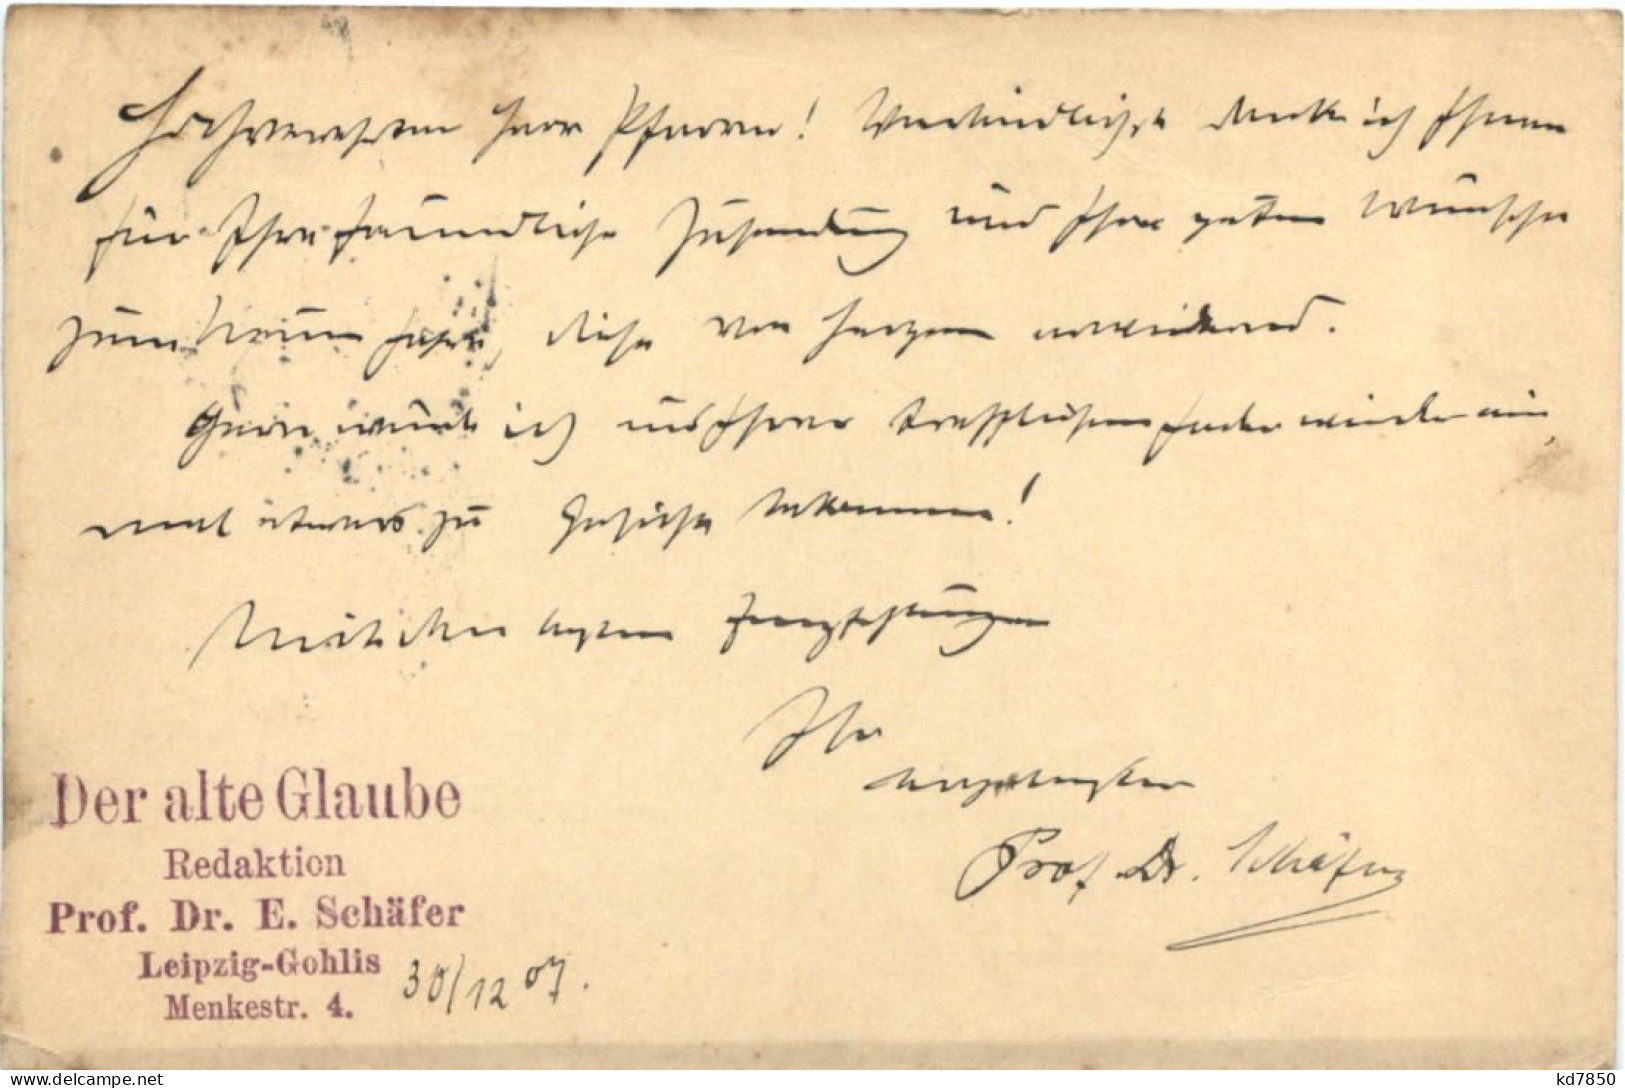 Hochverehrter Herr Pfarrer! Verbindlichst danke ich Ihnen
für Ihre freundliche Zusendung und Ihre guten Wünsche
zum neuen Jahre, diese von Herzen erwidernd.
Gern würde ich aus Ihrer trefflichen Feder wieder ein
mal etwas zu Gesichte bekommen!
Mit den besten Empfehlungen
Ihr
ergebenster
Prof. Dr. Schäfer
Der alte Glaube
Redaktion
Prof. Dr. E. Schäfer
Leipzig-Gohlis
Menkestr. 4.
30/12 07.
kd7850